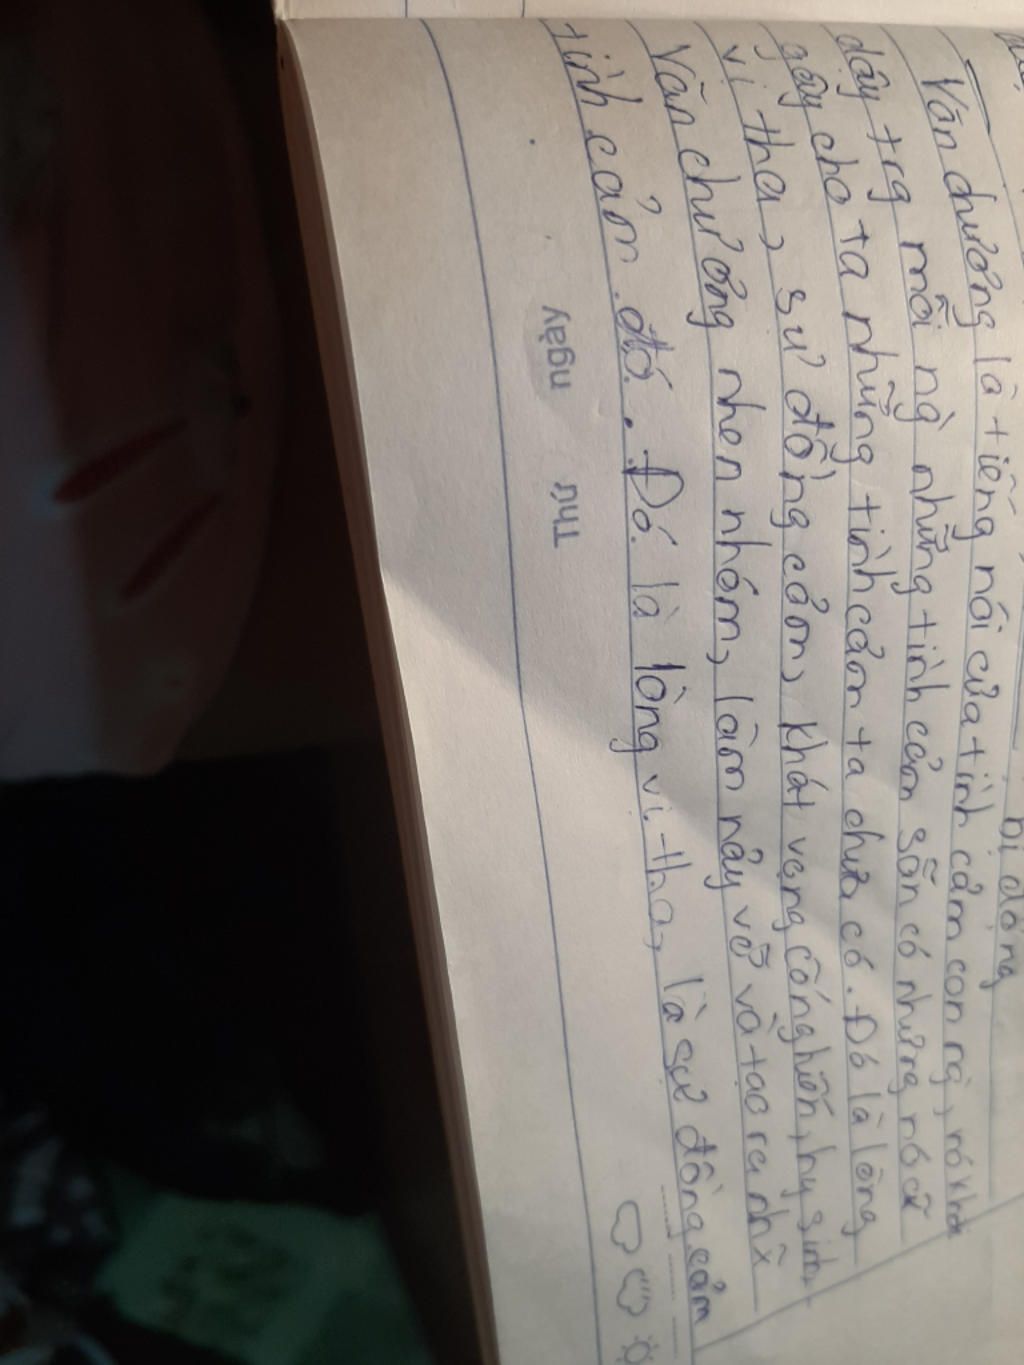 bị động
Văn chương là tiếng nói của tình cảm con ng, nó khơi
dậy trg mỗi ng những tình cảm sẵn có nhưng nó cũ
gây cho ta những tình cảm ta chưa có. Đó là lòng
vị tha, sự đồng cảm, khát vọng cống hiến, hy sinh,
Văn chương nhen nhóm, làm nảy nở và tạo ra nhữ
tình cảm đó. Đó là lòng vị tha, là sự đồng cảm
Thứ ngày